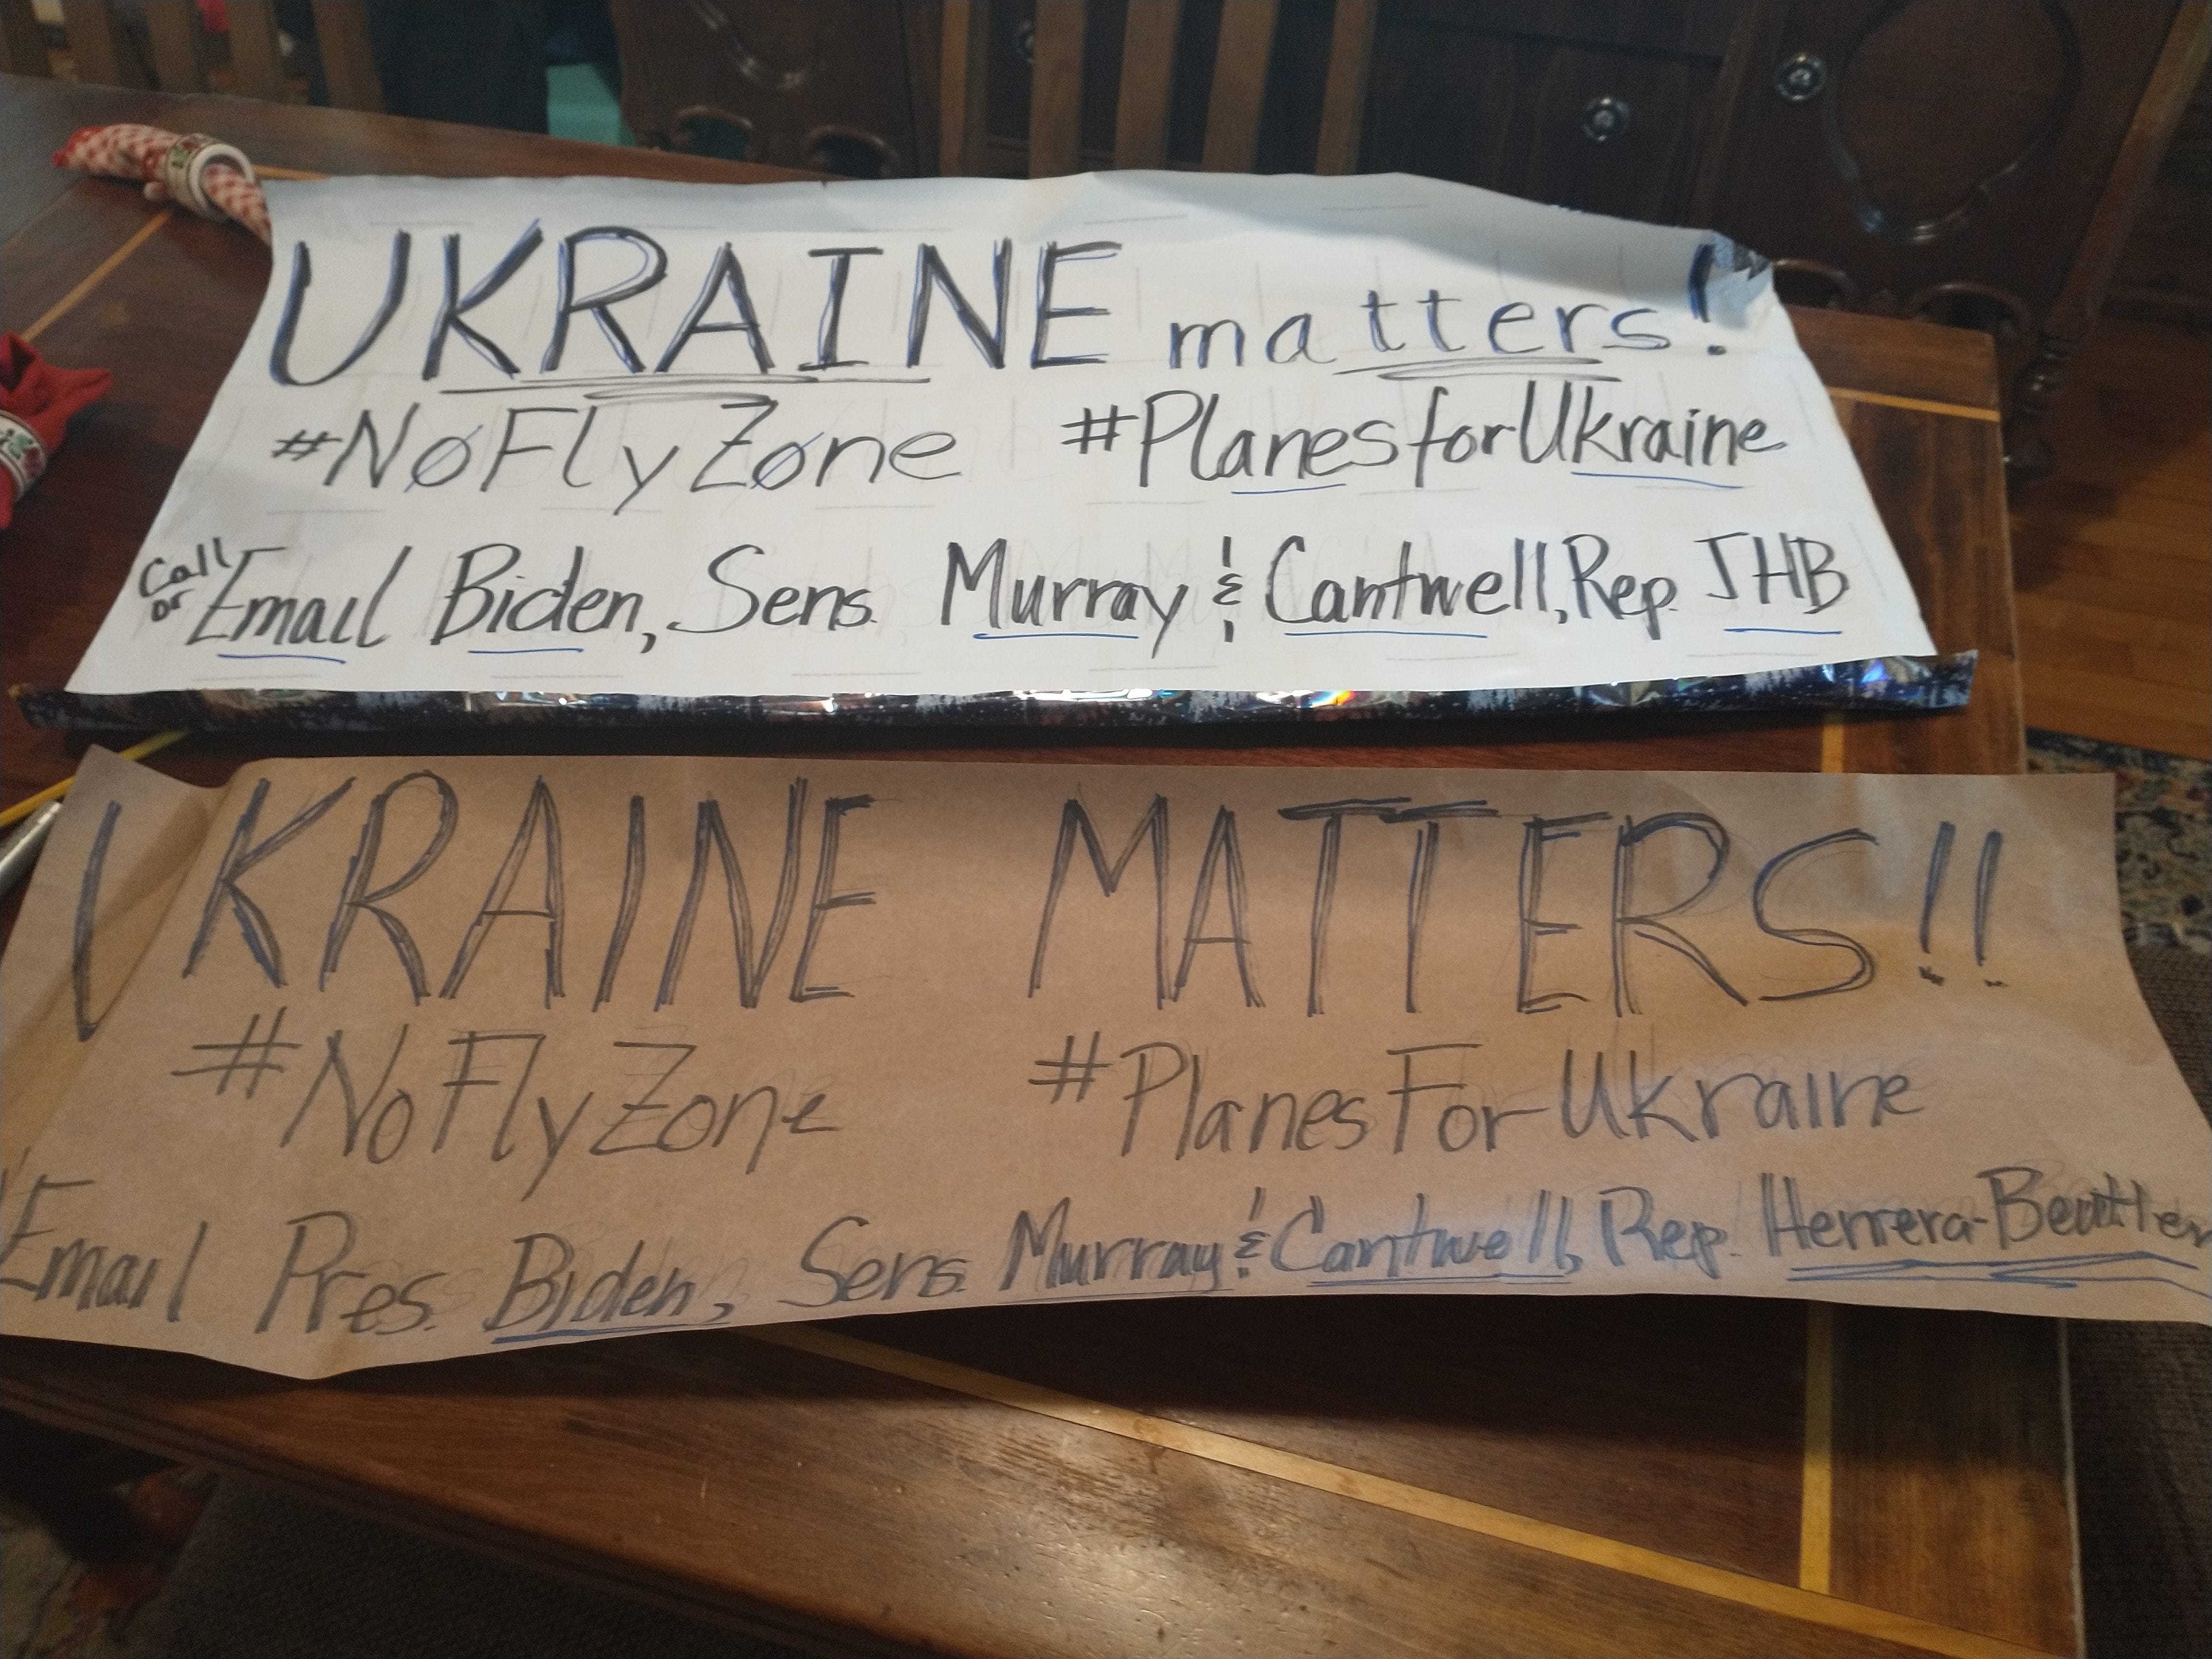 UKRAINE matters!
#NoFlyZone #PlanesforUkraine
Call or Email Biden, Sens. Murray & Cantwell, Rep. JHB
UKRAINE MATTERS!!
#NoFlyZone #PlanesForUkraine
Email Pres. Biden, Sens. Murray & Cantwell, Rep. Herrera-Beutler